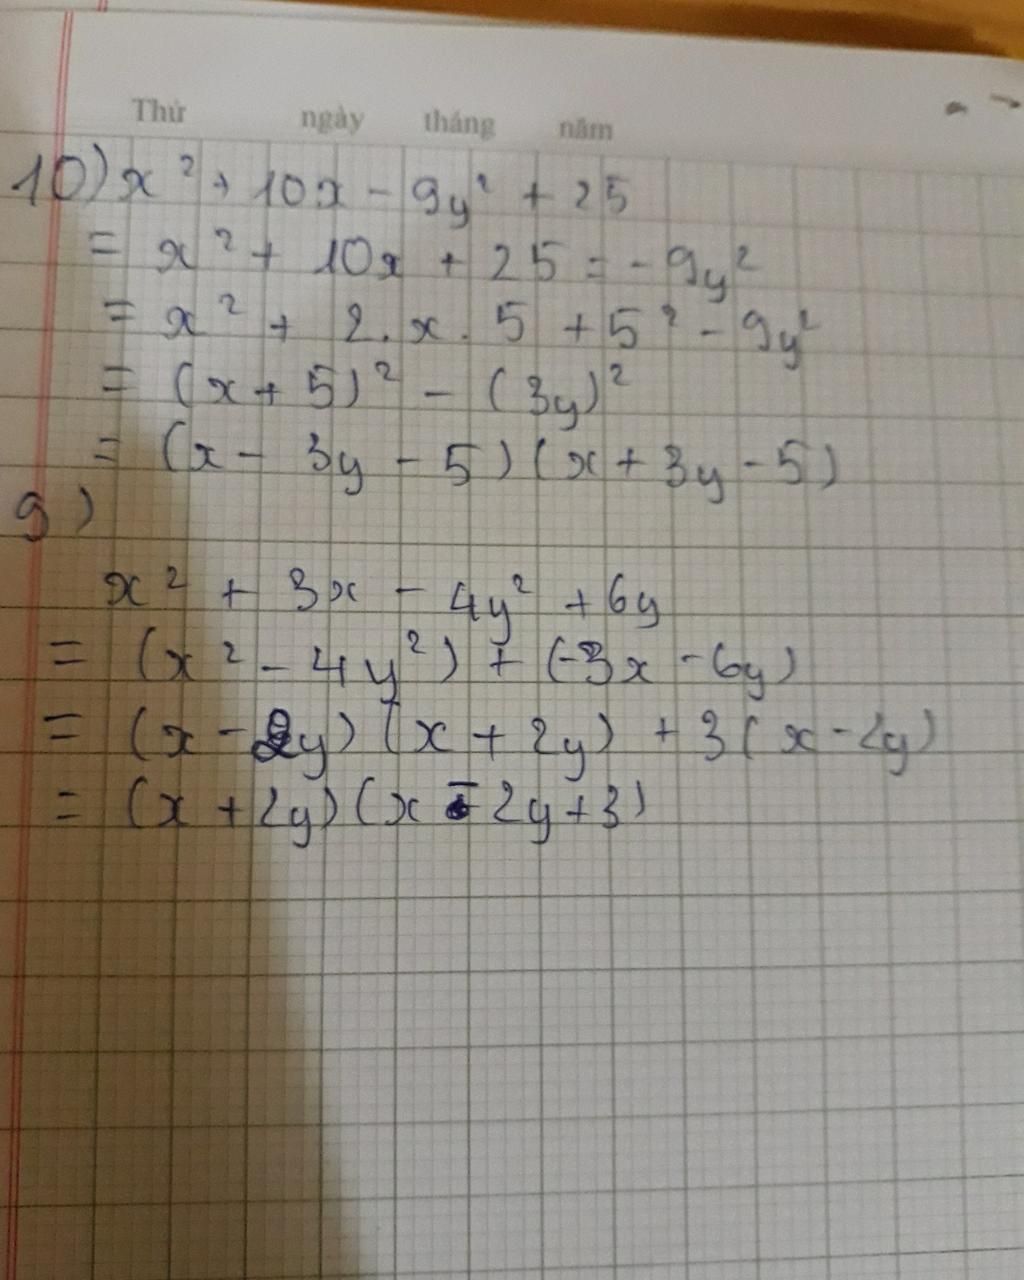 Thứ ngày tháng năm
10) x² + 10x - 9y² + 25
= x² + 10x + 25 = - 9y²
= x² + 2 . x . 5 + 5² - 9y²
= (x + 5)² - (3y)²
= (x - 3y - 5) (x + 3y - 5)
9)
x² + 3x - 4y² + 6y
= (x² - 4y²) + (-3x - 6y)
= (x - 2y) (x + 2y) + 3 (x - 2y)
= (x + 2y) (x - 2y + 3)